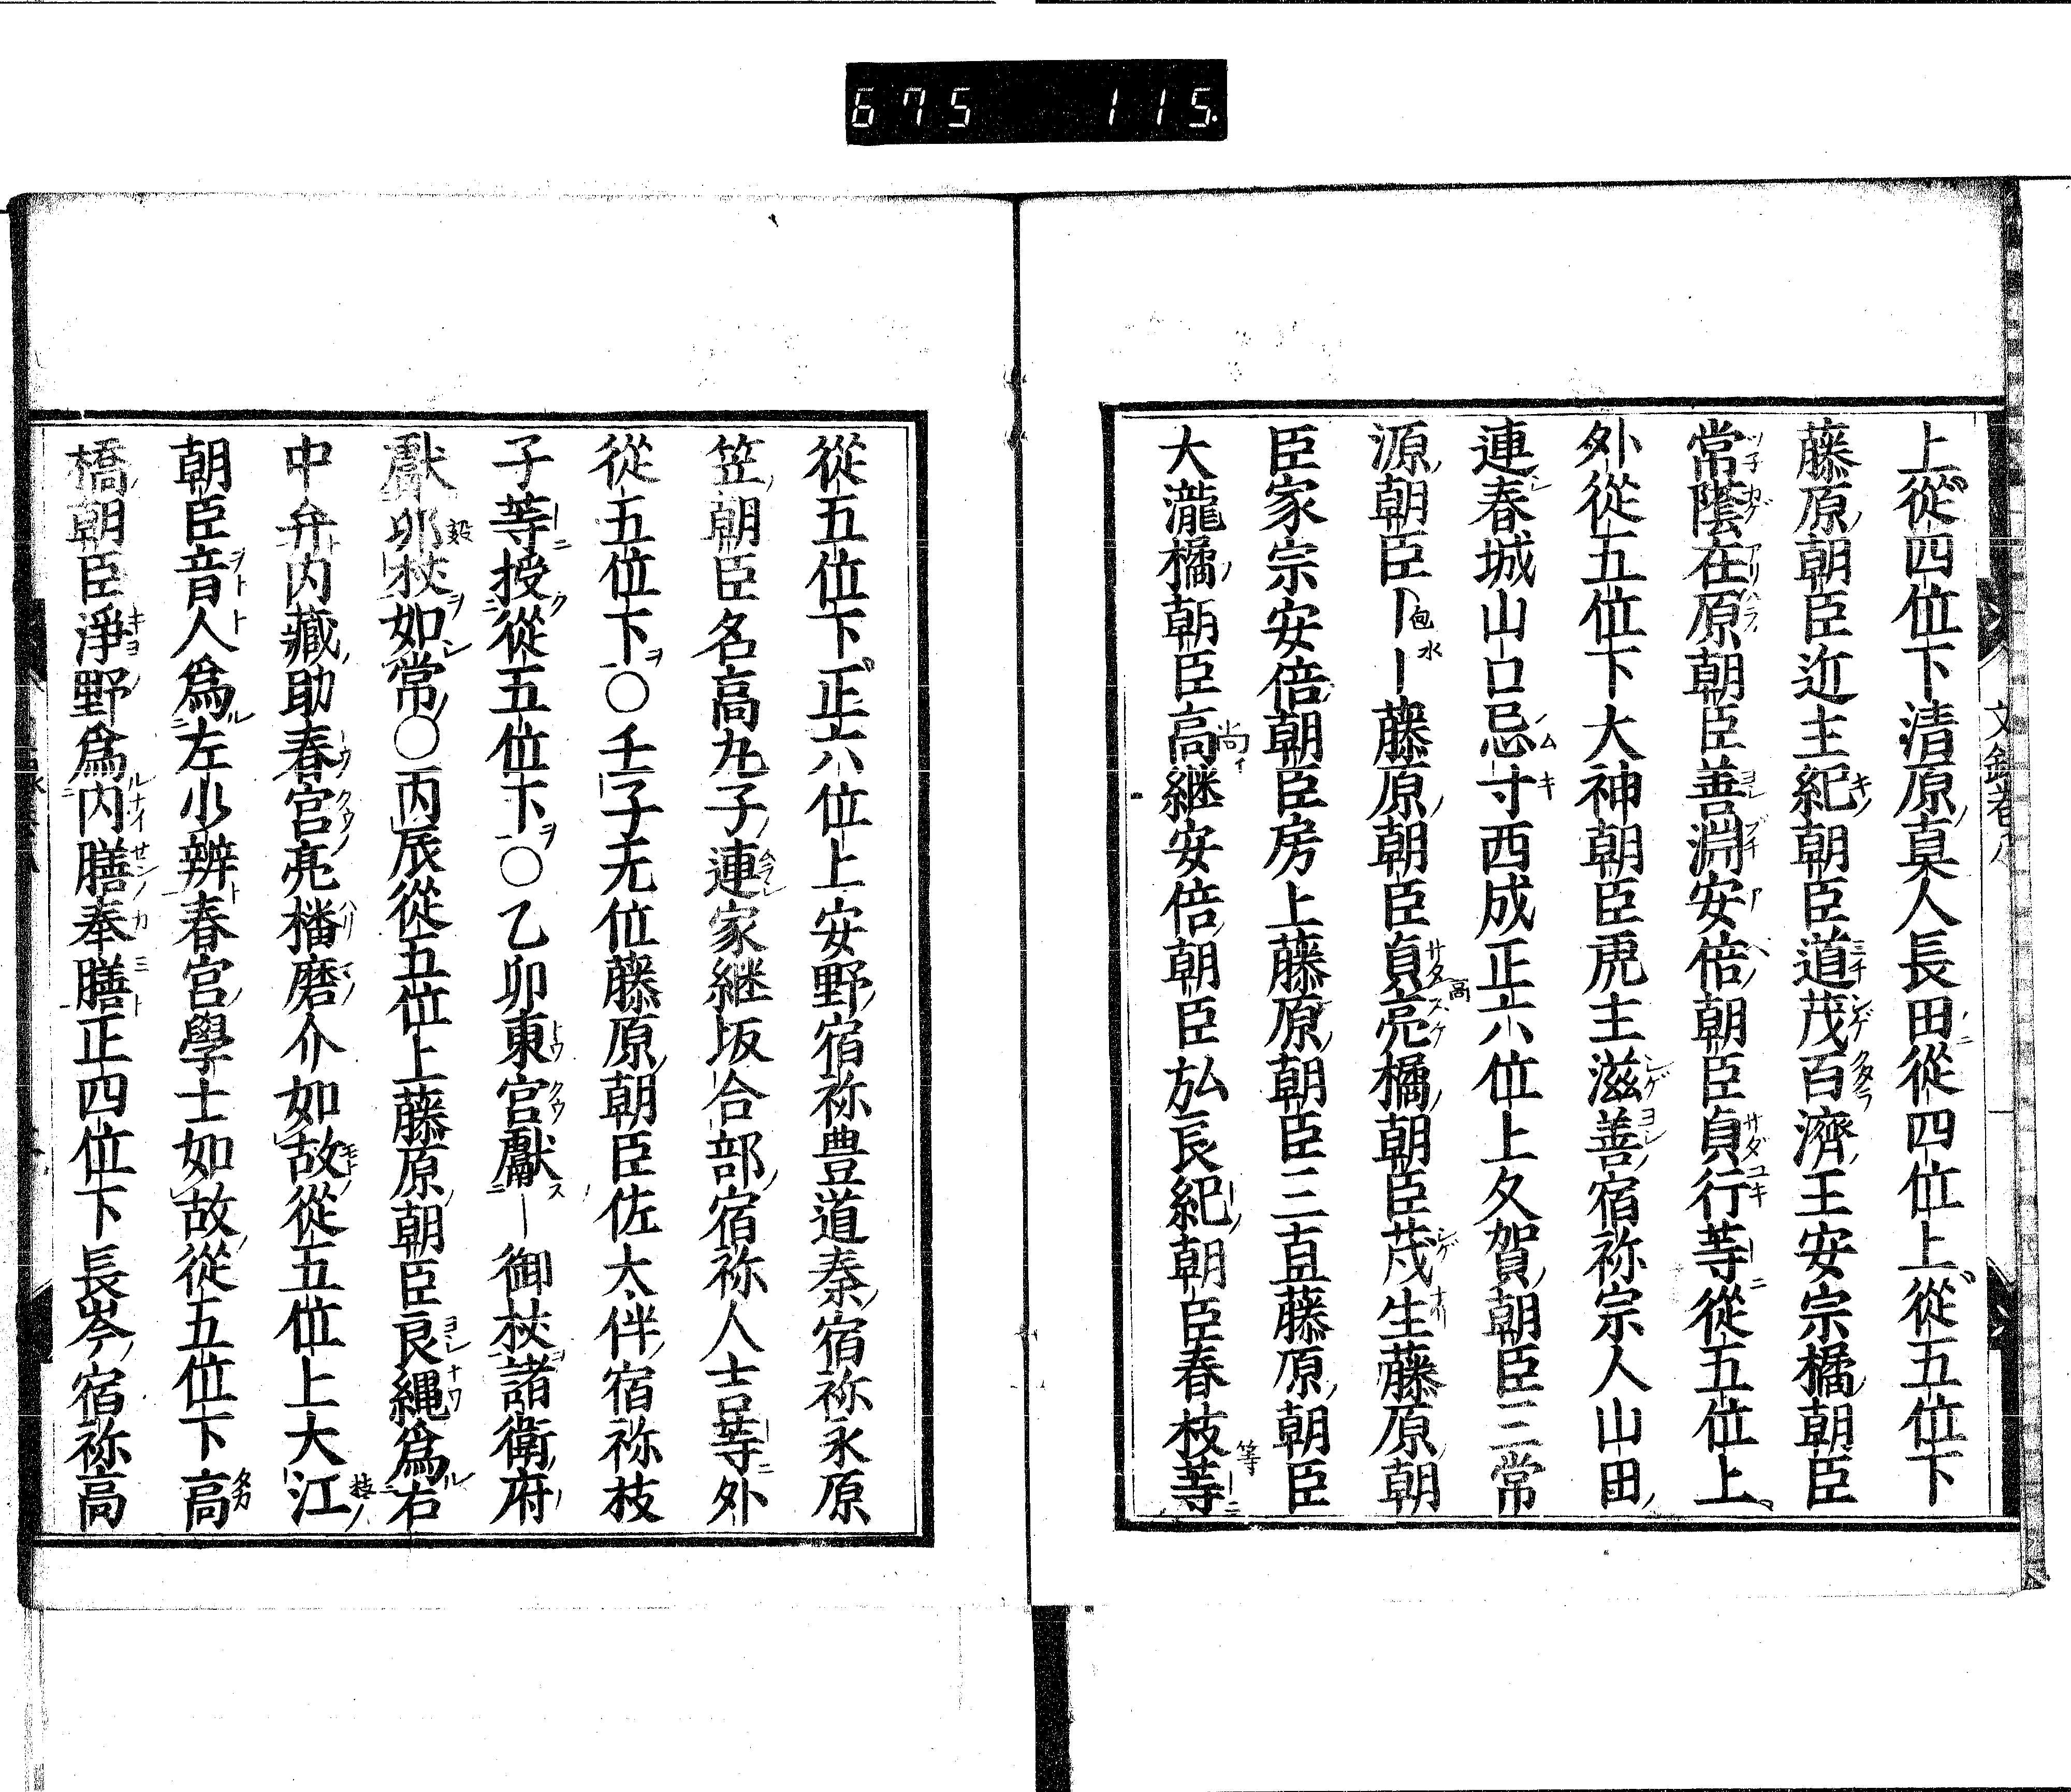 675 115.
上從四位下清原眞人長田從四位上從五位下
藤原朝臣近主紀朝臣道茂百濟王安宗橘朝臣
常蔭在原朝臣善淵安倍朝臣貞行等從五位上
外從五位下大神朝臣虎主滋善宿祢宗人山田
連春城山口忌寸西成正六位上久賀朝臣三常
源朝臣藤原朝臣貞亮橘朝臣茂生藤原朝
臣家宗安倍朝臣房上藤原朝臣三直藤原朝臣
大瀧橘朝臣高継安倍朝臣弘長紀朝臣春枝等
從五位下正六位上安野宿祢豊道秦宿祢永原
笠朝臣名高丸子連家継坂合部宿祢人吉等外
從五位下〇壬子无位藤原朝臣佐太伴宿祢枝
子等授從五位下〇乙卯東宮獻御杖諸衛府
獻卯杖如常〇丙辰從五位上藤原朝臣良縄爲右
中弁内藏助春宮亮播磨介如故從五位上大江
朝臣音人爲左少辨春宮學士如故從五位下高
橋朝臣淨野爲内膳奉膳正四位下長岑宿祢高